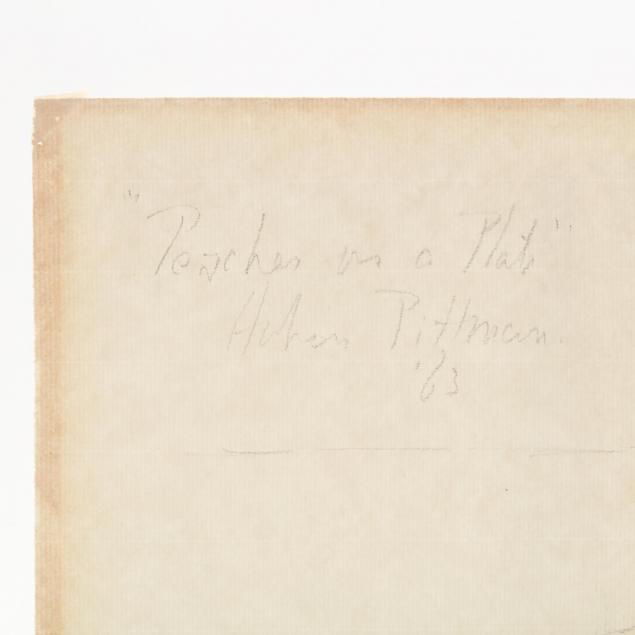 "Peaches on a Plate"
Hobson Pittman.
'63